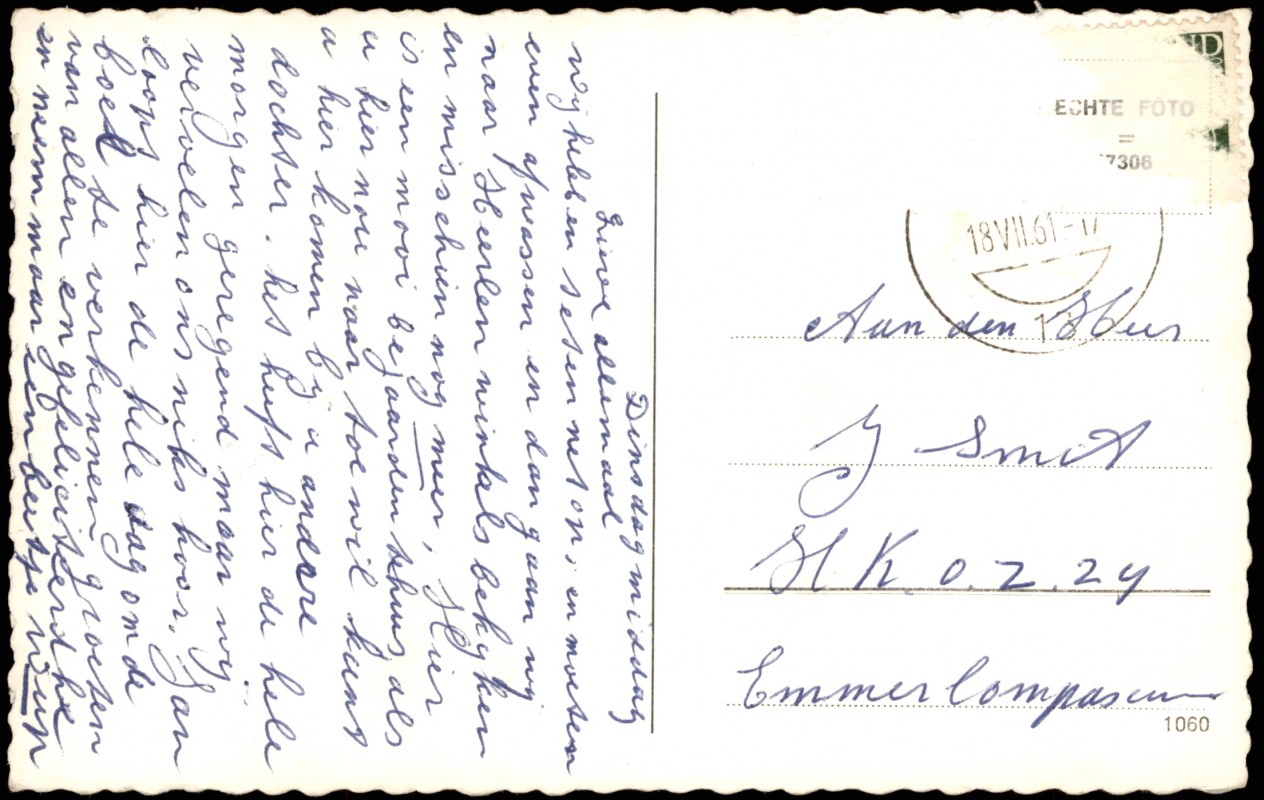 Dinsdagmiddag
Lieve allemaal
Wy hebben seten net op, en moeten
even afwassen en dan gaan wy
naar Heerlen winkels bekyken
en misschien nog meer, Hier
is een mooi bejaardenthuis als
u hier nou naar toe wil kunt
u hier komen by u andere
dochter. het heeft hier de hele
morgen geregend maar wy
vervelen ons niks hoor. Jan
loopt hier de hele dag om de
boel te verkennen groeten
van allen en gefeliciteerd hé
en neem maar een beetje wyn
ND
ECHTE FOTO
=
7306
18 VII.61-17
Aan den Heer
J Smit
H. K. o. z. 24
Emmer Compascuum
1060